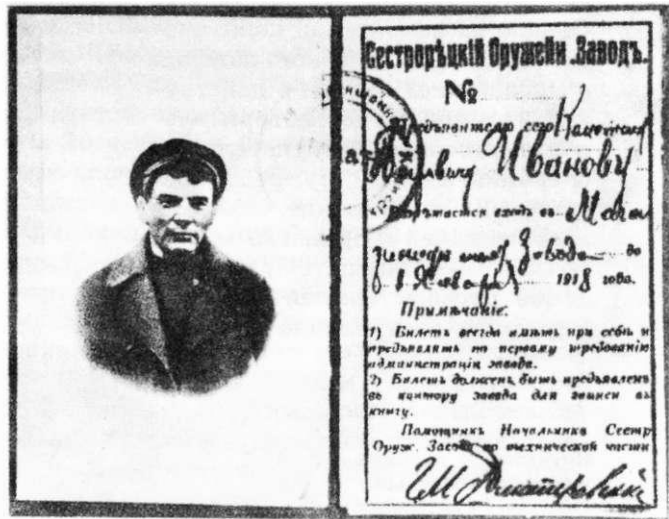 Сестрорѣцкій Оружейн. Заводъ.
№
Предъявителю сего
Иванову
Разрѣшается входъ въ
до
1 Января 1918 года.
Примѣчаніе:
1) Билетъ всегда имѣть при себѣ и
предъявлять по первому требованію
администраціи завода.
2) Билетъ долженъ быть предъявленъ
въ контору завода для записи въ
книгу.
Помощникъ Начальника Сестр
Оруж. Завода по технической части